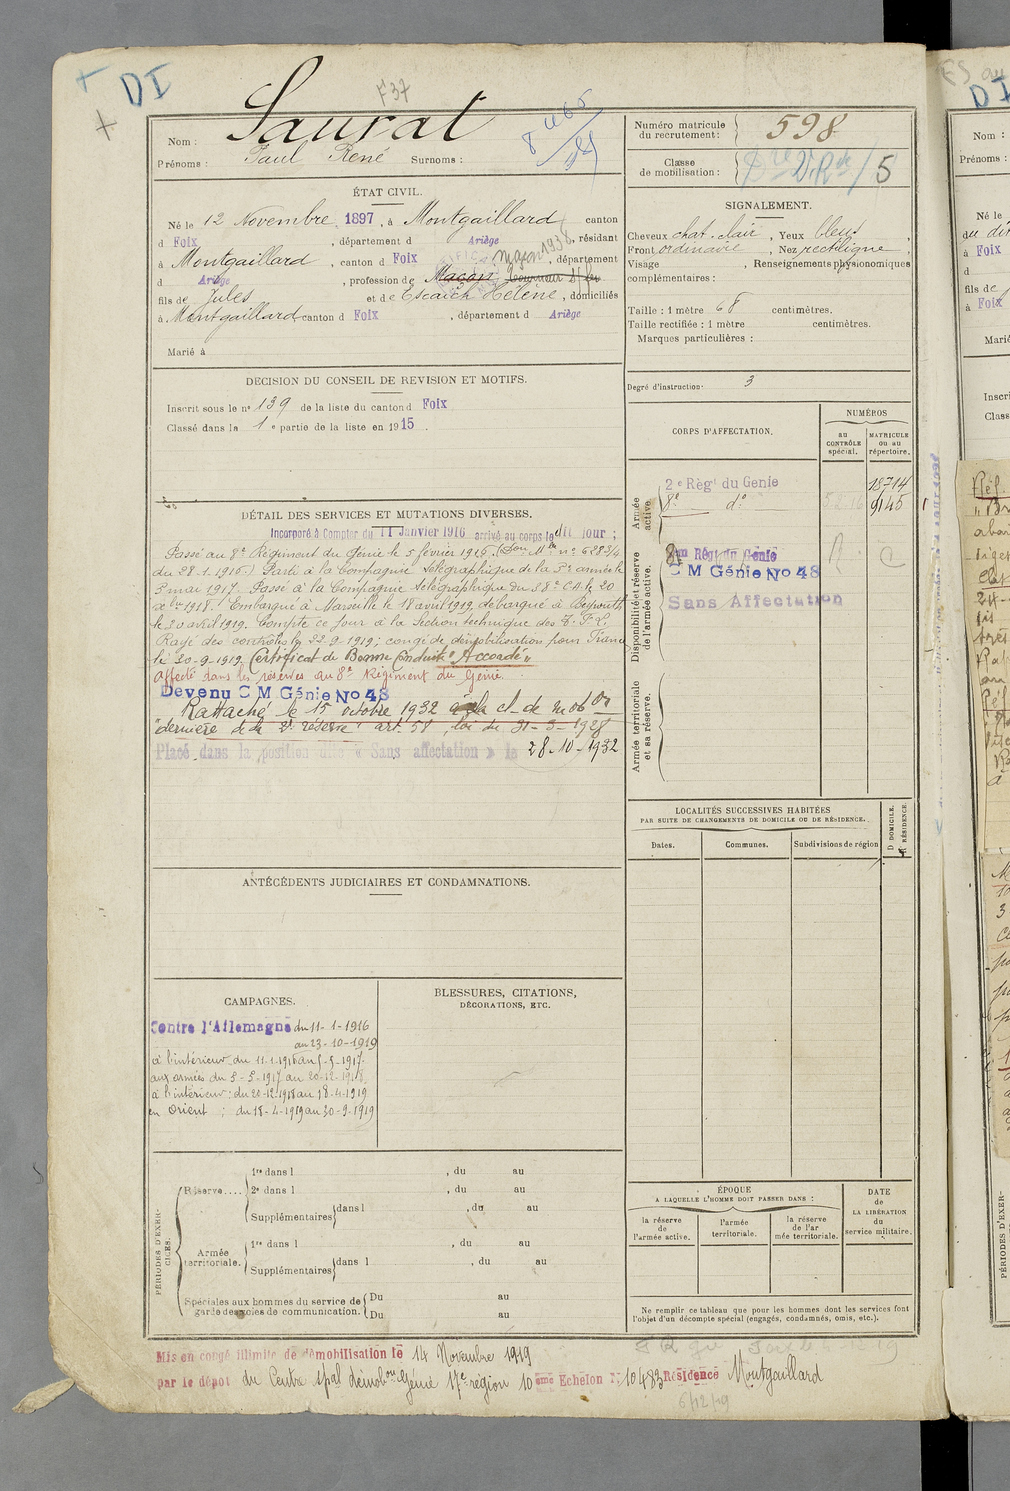 DI
F37
Nom : Saurat
Prénoms : Paul René Surnoms :
Numéro matricule du recrutement : 598
Classe de mobilisation : 5
ÉTAT CIVIL.
Né le 12 Novembre 1897, à Montgaillard canton
d Foix, département d Ariège, résidant
à Montgaillard, canton d Foix, département
d Ariège, profession de Maçon
fils de Jules et de Escaich Hélène, domiciliés
à Montgaillard canton d Foix, département d Ariège
Marié à
SIGNALEMENT.
Cheveux chat. clair, Yeux bleus,
Front ordinaire, Nez rectiligne,
Visage , Renseignements physionomiques
complémentaires :
Taille : 1 mètre 68 centimètres.
Taille rectifiée : 1 mètre centimètres.
Marques particulières :
Degré d'instruction. 3
DECISION DU CONSEIL DE REVISION ET MOTIFS.
Inscrit sous le n° 139 de la liste du canton d Foix
Classé dans la 1e partie de la liste en 1915.
CORPS D'AFFECTATION.
NUMÉROS
au CONTRÔLE spécial.
MATRICULE ou au répertoire.
Armée active.
2e Régt du Génie 18714
8e do 9145
Disponibilité et réserve de l'armée active.
8me Rég du Génie
C M Génie No 48
Sans Affectation
Armée territoriale et sa réserve.
DÉTAIL DES SERVICES ET MUTATIONS DIVERSES.
Incorporé à Compter du 11 Janvier 1916 arrivé au corps le dit jour ;
Passé au 8e Régiment du Génie le 5 février 1916. (Don Mlle n° 6883/4
du 28-1-1916.) Parti à la Compagnie Télégraphique de la 5e armée le
5 mai 1917. Passé à la Compagnie télégraphique du 38e C.A. le 20
xbre 1918. Embarqué à Marseille le 18 avril 1919, débarqué à Beyrouth
le 30 avril 1919. Compte ce jour à la Section technique des T.F.L.
Rayé des contrôles le 22-9-1919; congé de démobilisation pour France
le 30-9-1919. Certificat de Bonne Conduite "Accordé"
Affecté dans les réserves au 8e Régiment du Génie.
Devenu C M Génie No 48
Rattaché le 15 octobre 1932 à la cl. de mobon
"dernière de la 2e réserve" art. 58, loi du 31-3-1928
Placé dans la position dite « Sans affectation » le 28-10-1932
LOCALITÉS SUCCESSIVES HABITÉES
PAR SUITE DE CHANGEMENTS DE DOMICILE OU DE RÉSIDENCE.
Dates. Communes. Subdivisions de région
D DOMICILE. R RÉSIDENCE.
ANTÉCÉDENTS JUDICIAIRES ET CONDAMNATIONS.
CAMPAGNES.
Contre l'Allemagne du 11-1-1916
au 23-10-1919
à l'intérieur du 11-1-1916 au 5-5-1917.
aux armées du 5-5-1917 au 20-12-1918,
à l'intérieur : du 20-12-1918 au 18-4-1919
en Orient ; du 18-4-1919 au 30-9-1919
BLESSURES, CITATIONS,
DÉCORATIONS, ETC.
PÉRIODES D'EXERCICES.
Réserve.... 1re dans l , du au
2e dans l , du au
Supplémentaires dans l , du au
Armée territoriale. 1re dans l , du au
Supplémentaires dans l , du au
Spéciales aux hommes du service de garde des voies de communication. Du au
Du au
ÉPOQUE
A LAQUELLE L'HOMME DOIT PASSER DANS :
la réserve de l'armée active.
l'armée territoriale.
la réserve de l'armée territoriale.
DATE de LA LIBÉRATION du service militaire.
Ne remplir ce tableau que pour les hommes dont les services font
l'objet d'un décompte spécial (engagés, condamnés, omis, etc.).
Mis en congé illimité de démobilisation le 14 Novembre 1919
par le dépôt du Centre spal démobon Génie 17e région 10eme Echelon N° 10483 Résidence Montgaillard
6/12/19